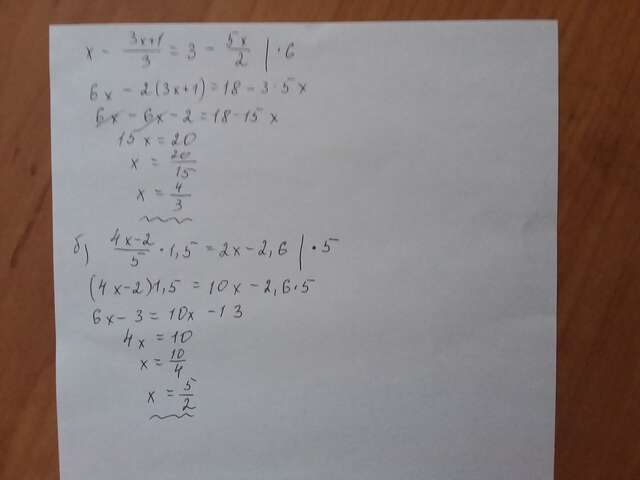 x - \frac{3x+1}{3} = 3 = \frac{5x}{2} | · 6
6x - 2(3x+1) = 18 - 3 · 5x
6x - 6x - 2 = 18 - 15x
15x = 20
x = \frac{20}{15}
x = \frac{4}{3}
б) \frac{4x-2}{5} · 1,5 = 2x - 2,6 | · 5
(4x-2)1,5 = 10x - 2,6 · 5
6x - 3 = 10x - 13
4x = 10
x = \frac{10}{4}
x = \frac{5}{2}